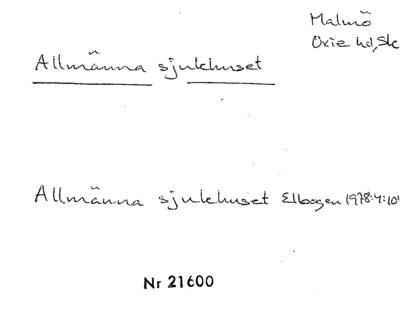 Malmö
Oxie hd, Sk
Allmänna sjukhuset
Allmänna sjukhuset Elbogen 1978:4:10
Nr 21600